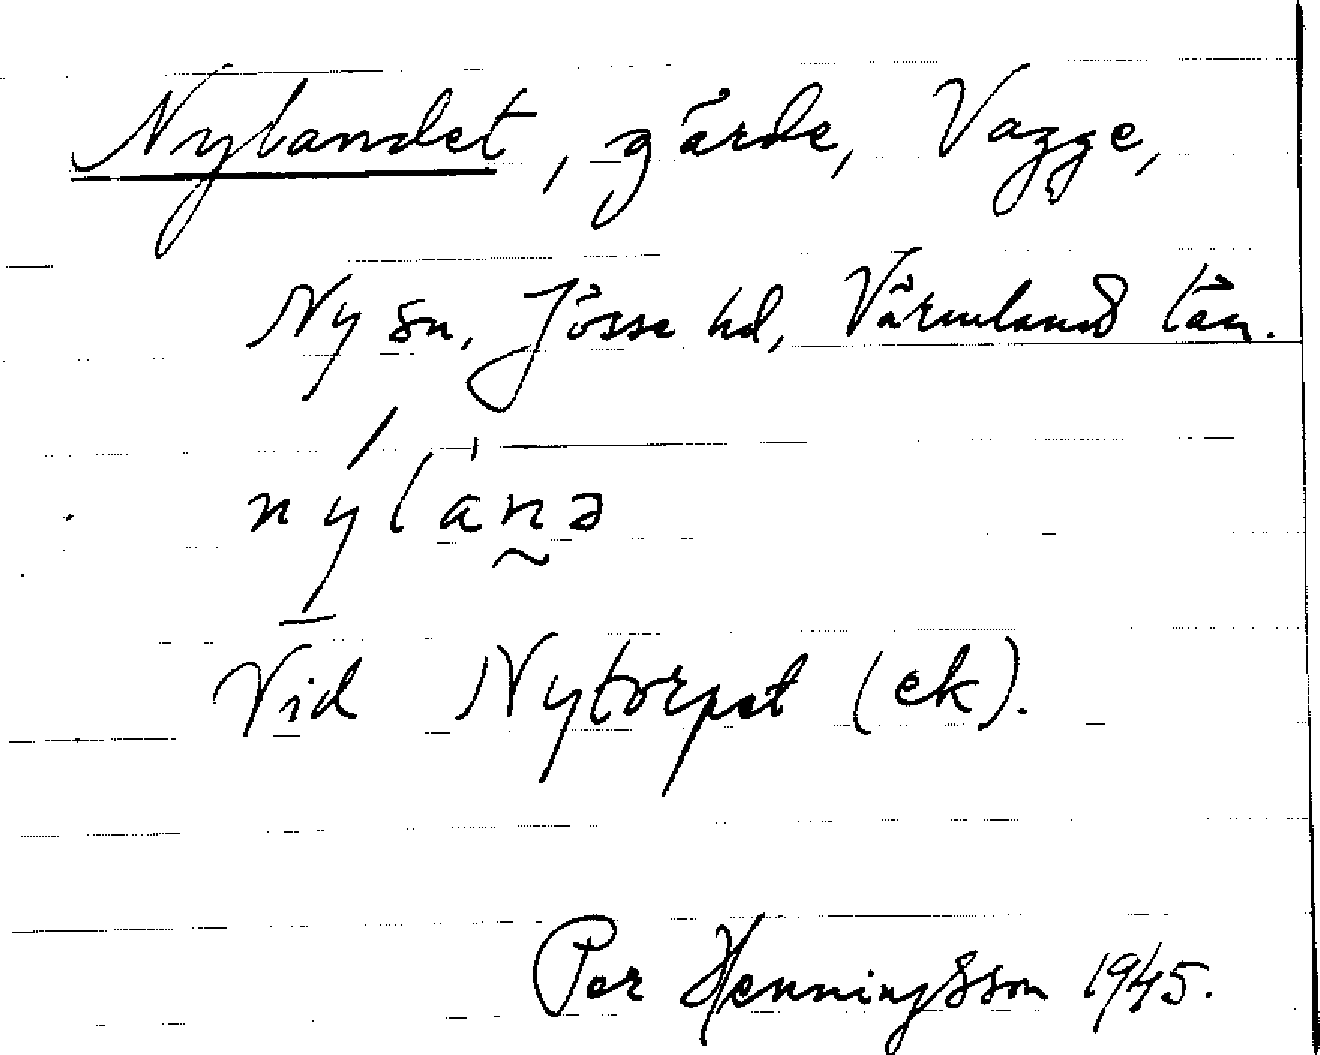 Nylandet, gärde, Vagge,
Ny sn, Jösse hd, Värmlands län.
nýlànə
Vid Nytorpet (ek).
Per Henningsson 1945.